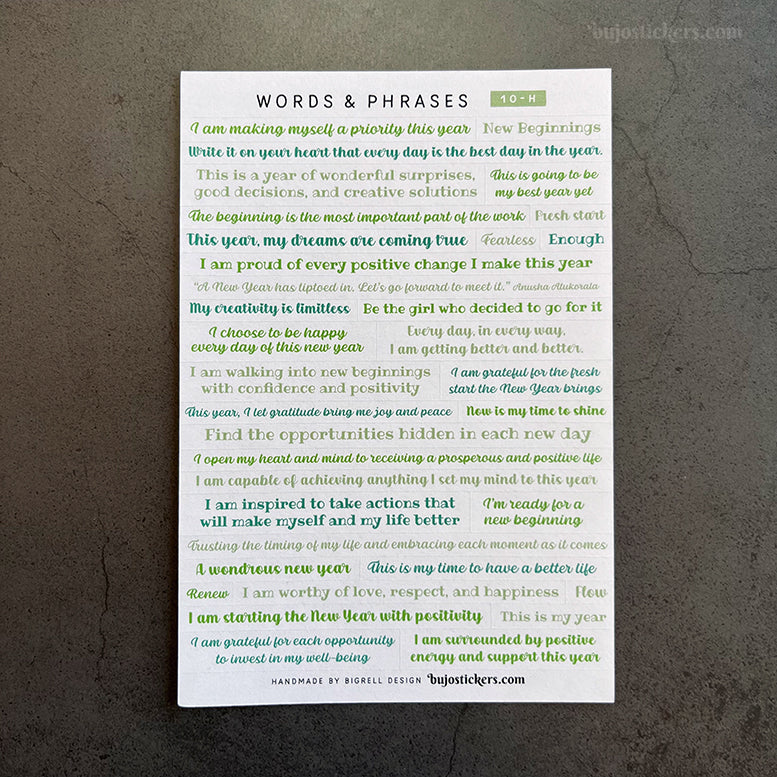 bujostickers.com
WORDS & PHRASES 10-H
I am making myself a priority this year New Beginnings
Write it on your heart that every day is the best day in the year.
This is a year of wonderful surprises,
good decisions, and creative solutions
This is going to be
my best year yet
The beginning is the most important part of the work Fresh start
This year, my dreams are coming true Fearless Enough
I am proud of every positive change I make this year
“A New Year has tiptoed in. Let's go forward to meet it.” Anusha Atukorala
My creativity is limitless Be the girl who decided to go for it
I choose to be happy
every day of this new year
Every day, in every way,
I am getting better and better.
I am walking into new beginnings
with confidence and positivity
I am grateful for the fresh
start the New Year brings
This year, I let gratitude bring me joy and peace Now is my time to shine
Find the opportunities hidden in each new day
I open my heart and mind to receiving a prosperous and positive life
I am capable of achieving anything I set my mind to this year
I am inspired to take actions that
will make myself and my life better
I'm ready for a
new beginning
Trusting the timing of my life and embracing each moment as it comes
A wondrous new year This is my time to have a better life
Renew I am worthy of love, respect, and happiness Flow
I am starting the New Year with positivity This is my year
I am grateful for each opportunity
to invest in my well-being
I am surrounded by positive
energy and support this year
HANDMADE BY BIGRELL DESIGN bujostickers.com